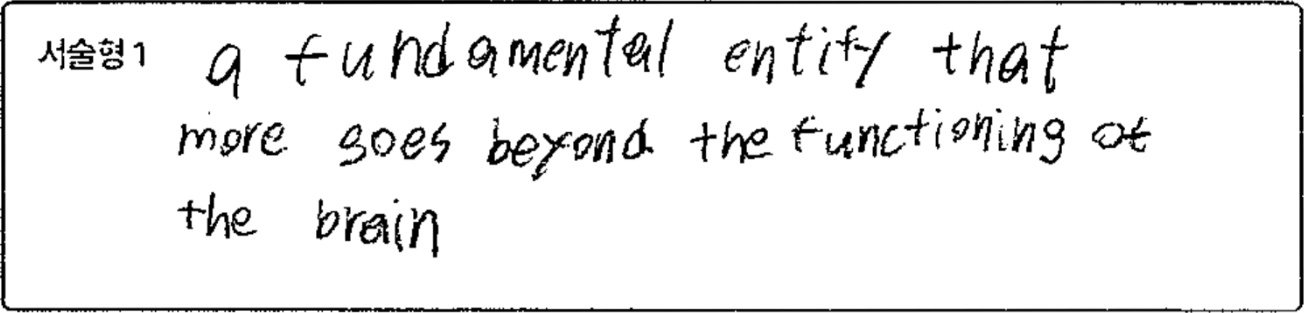 서술형 1 a fundamental entity that
more goes beyond the functioning of
the brain